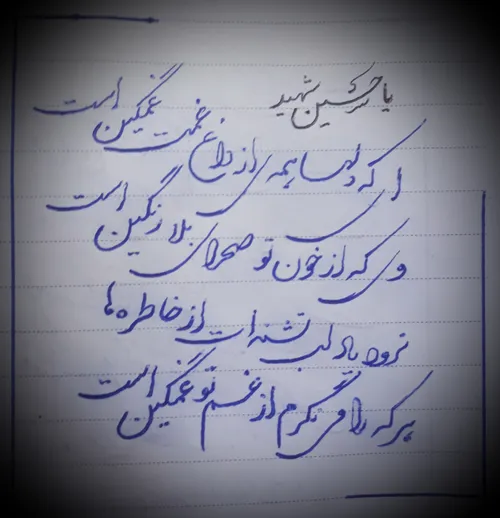 یا حسین شهید
ای که دلها همه از داغ غمت غمگین است
وی که از خون تو صحرای بلا رنگین است
نرود یاد لب تشنه ات از خاطره ها
هر که را می نگرم از غم تو غمگین است